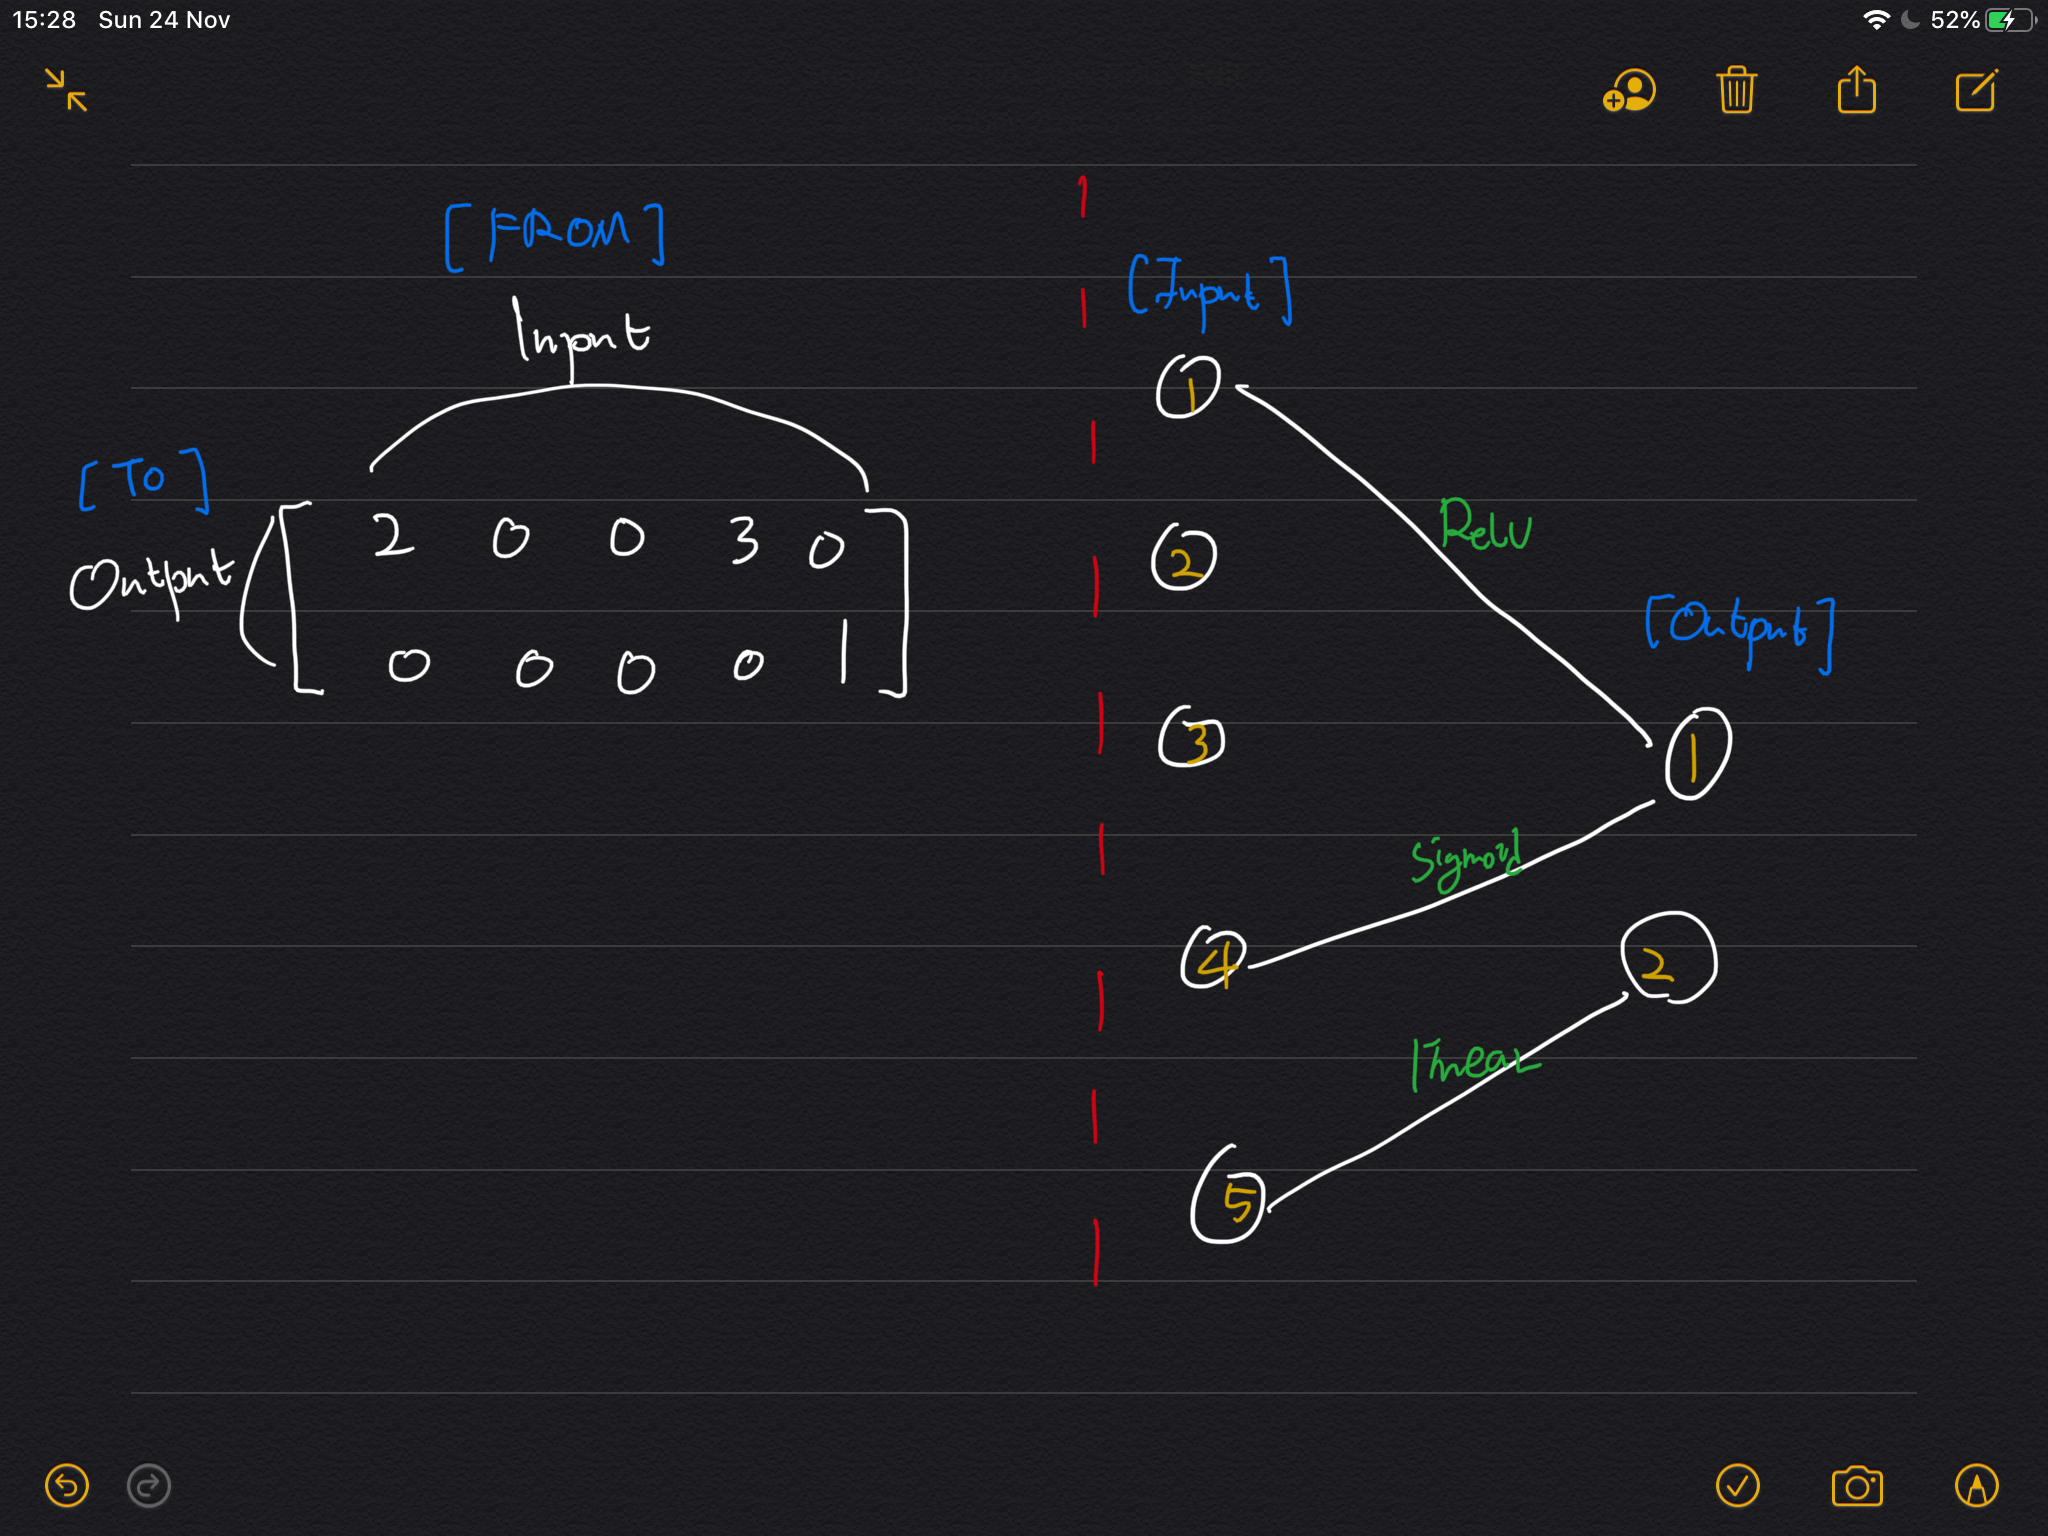 15:28 Sun 24 Nov
52%
[FROM]
Input
[TO]
Output
2 0 0 3 0
0 0 0 0 1
[Input]
1
Relu
2
[Output]
3
1
Sigmoid
4
2
linear
5